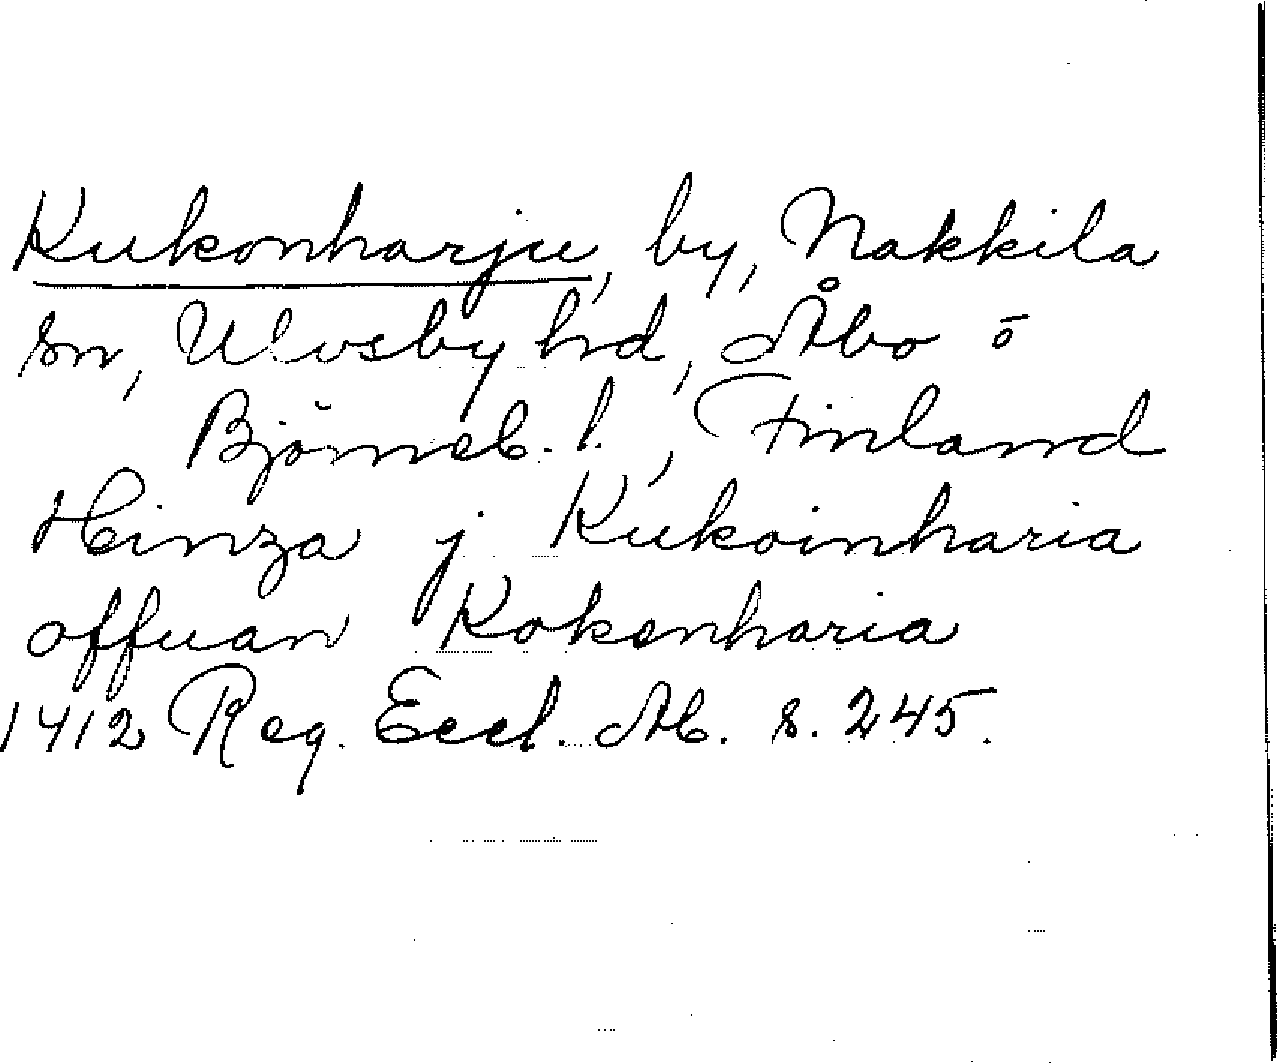 Kukonharju, by, Nakkila
sn, Ulvsby hd, Åbo o
Björneb. l., Finland
Hinza j Kukoinharia
offuan Kokenharia
1412 Reg. Eccl. Ab. s. 245.